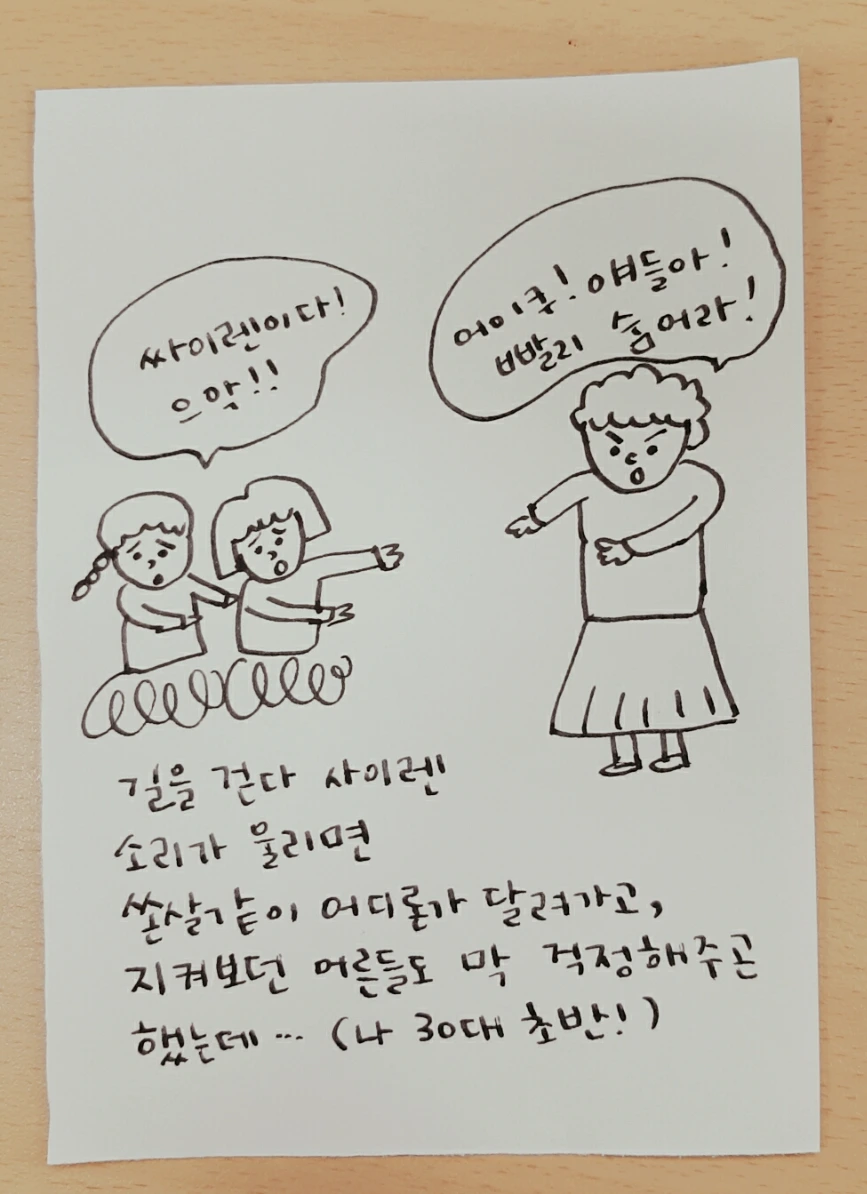 싸이렌이다!
으악!!
어이쿠! 얘들아!
빨리 숨어라!
길을 걷다 사이렌
소리가 울리면
쏜살같이 어디론가 달려가고,
지켜보던 어른들도 막 걱정해주곤
했는데… (나 30대 초반!)